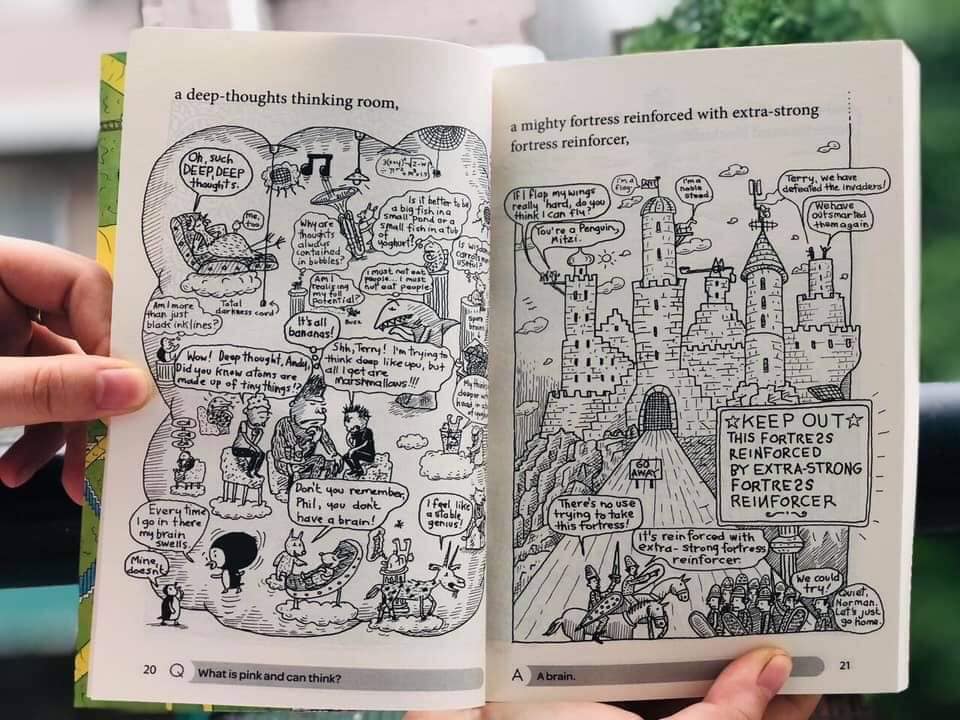 a deep-thoughts thinking room,
Oh, such
DEEP, DEEP
thoughts.
Me,
too.
Why are
thoughts
always
contained
in bubbles?
Is it better to be
a big fish in a
small pond or a
small fish in a tub
of
yoghurt?
Am I
realising
my full
potential?
I must not eat
people... I must
not eat people
Am I more
than just
black ink lines?
Total
darkness cord
It's all
bananas!
Wow! Deep thought, Andy.
Did you know atoms are
made up of tiny things!?
Shh, Terry! I'm trying to
think deep like you, but
all I get are
marshmallows!!!
Every time
I go in there
my brain
swells.
Mine
doesn't.
Don't you remember,
Phil, you don't
have a brain!
I feel like
a stable
genius!
20 Q What is pink and can think?
a mighty fortress reinforced with extra-strong
fortress reinforcer,
If I flap my wings
really hard, do you
think I can fly?
You're a Penguin,
Mitzi.
I'm a
flag!
I'm a
noble
steed
Terry, we have
defeated the invaders!
We have
outsmarted
them again
☆KEEP OUT☆
THIS FORTRESS
REINFORCED
BY EXTRA-STRONG
FORTRESS
REINFORCER
GO
AWAY
There's no use
trying to take
this fortress!
It's reinforced with
extra-strong fortress
reinforcer.
We could
try!
Quiet,
Norman.
Let's just
go home.
A A brain.
21